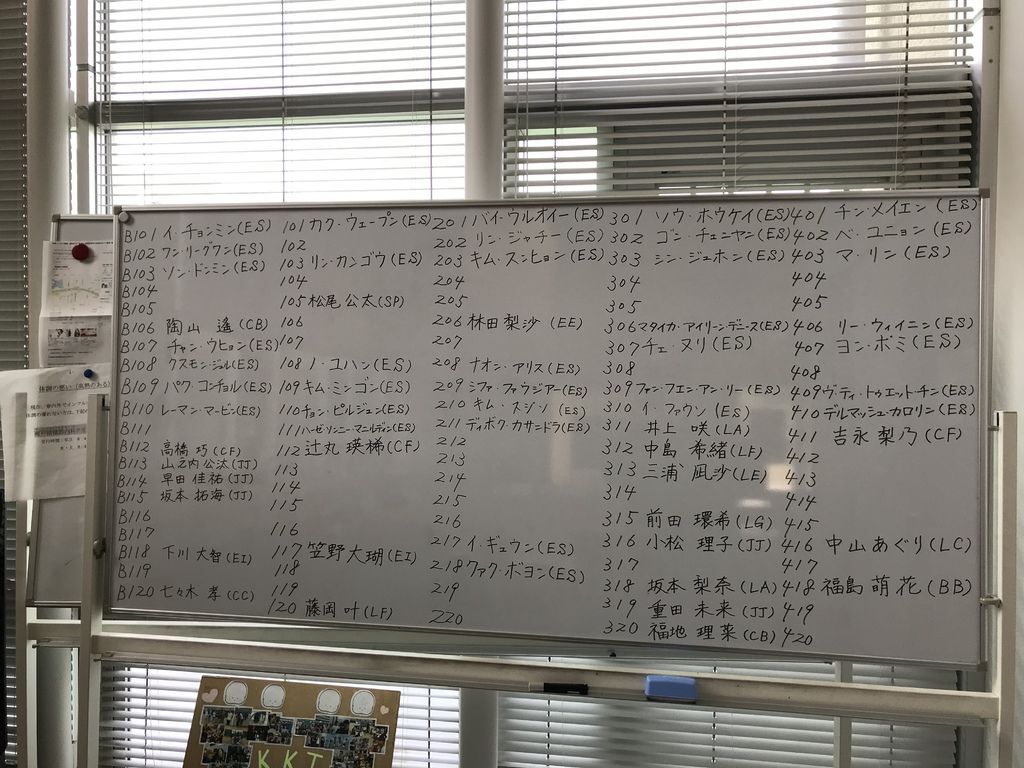 B101 イ・チョンミン(ES)
B102 ワン・リーグワン(ES)
B103 ソン・ドンミン(ES)
B104
B105
B106 陶山 遙(CB)
B107 チャン・ウヒョン(ES)
B108 クスモン・ジル(ES)
B109 パク・コンチョル(ES)
B110 レーマン・マービン(ES)
B111
B112 高橋 巧(CF)
B113 山之内 公汰(JJ)
B114 早田 佳祐(JJ)
B115 坂本 拓海(JJ)
B116
B117
B118 下川 大智(EI)
B119
B120 七々木 孝(CC)
101 カク・ウェープン(ES)
102
103 リン・カンゴウ(ES)
104
105 松尾 公太(SP)
106
107
108 ノ・ユハン(ES)
109 キム・ミンゴン(ES)
110 チョン・ピルジュン(ES)
111 ハーゼリンニー・マニルデン(ES)
112 辻丸 瑛稀(CF)
113
114
115
116
117 笠野 大瑚(EI)
118
119
120 藤岡 叶(LF)
201 バイ・ウルオイー(ES)
202 リン・ジャチー(ES)
203 キム・スンヒョン(ES)
204
205
206 林田 梨沙 (EE)
207
208 ナオン・アリス(ES)
209 シファ・ファウジアー(ES)
210 キム・スジン (ES)
211 ディボク・カサンドラ(ES)
212
213
214
215
216
217 イ・ギュウン(ES)
218 ファク・ボヨン(ES)
219
220
301 ソウ・ホウケイ(ES)
302 ゴン・チェニヤン(ES)
303 シン・ジュホン(ES)
304
305
306 マタイカ・アイリーンデニース(ES)
307 チェ・ヌリ(ES)
308
309 ファン・フエン・アン・リー(ES)
310 イ・ファウン(ES)
311 井上 咲(LA)
312 中島 希緒(LF)
313 三浦 凪沙(LE)
314
315 前田 環希(LG)
316 小松 理子(JJ)
317
318 坂本 梨奈(LA)
319 重田 未来(JJ)
320 福地 理菜(CB)
401 チン・メイエン(ES)
402 ベ・ユニョン(ES)
403 マ・リン(ES)
404
405
406 リー・ウィイニン(ES)
407 ヨン・ボミ(ES)
408
409 ヴ・ティ・トゥエット・チン(ES)
410 デルマッシュ・カロリン(ES)
411 吉永 梨乃(CF)
412
413
414
415
416 中山 あぐり(LC)
417
418 福島 萌花(BB)
419
420
KKT